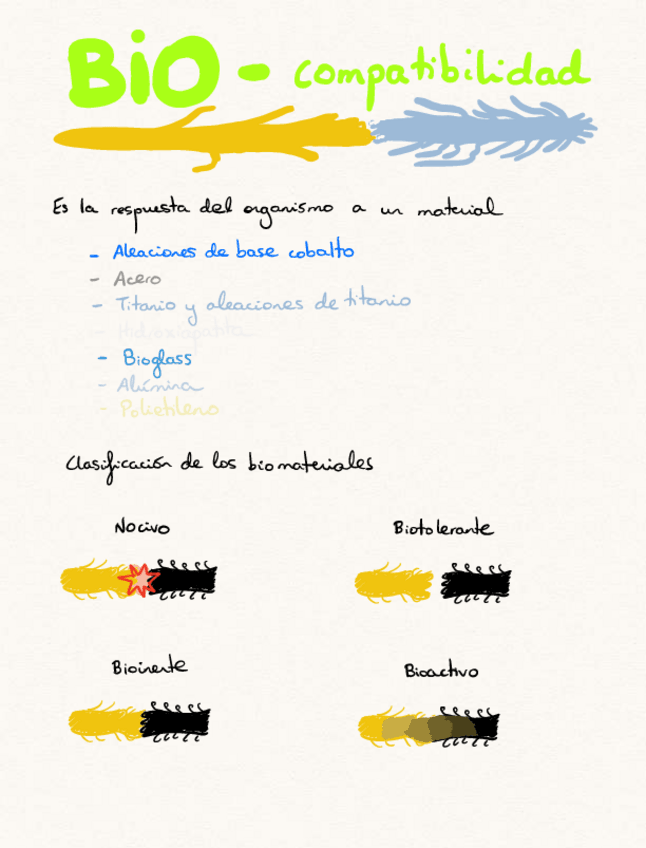 BiO - compatibilidad
Es la respuesta del organismo a un material
- Aleaciones de base cobalto
- Acero
- Titanio y aleaciones de titanio
- Hidroxiapatita
- Bioglass
- Alúmina
- Polietileno
Clasificación de los biomateriales
Nocivo
Biotolerante
Bioinerte
Bioactivo